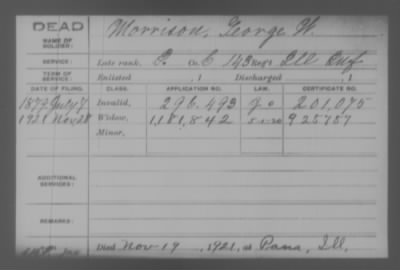 DEAD
NAME OF SOLDIER: Morrison, George W.
SERVICE: Late rank, P. Co. C, 143 Reg't Ill Inf
TERM OF SERVICE: Enlisted , 1 Discharged , 1
DATE OF FILING. CLASS. APPLICATION NO. LAW. CERTIFICATE NO.
1879 July 7 Invalid, 296.493 201.075
1921 Nov 28 Widow, 1,181,842 5-1-20 925757
Minor,
ADDITIONAL SERVICES:
REMARKS:
Died Nov 19, 1921, at Pana, Ill.